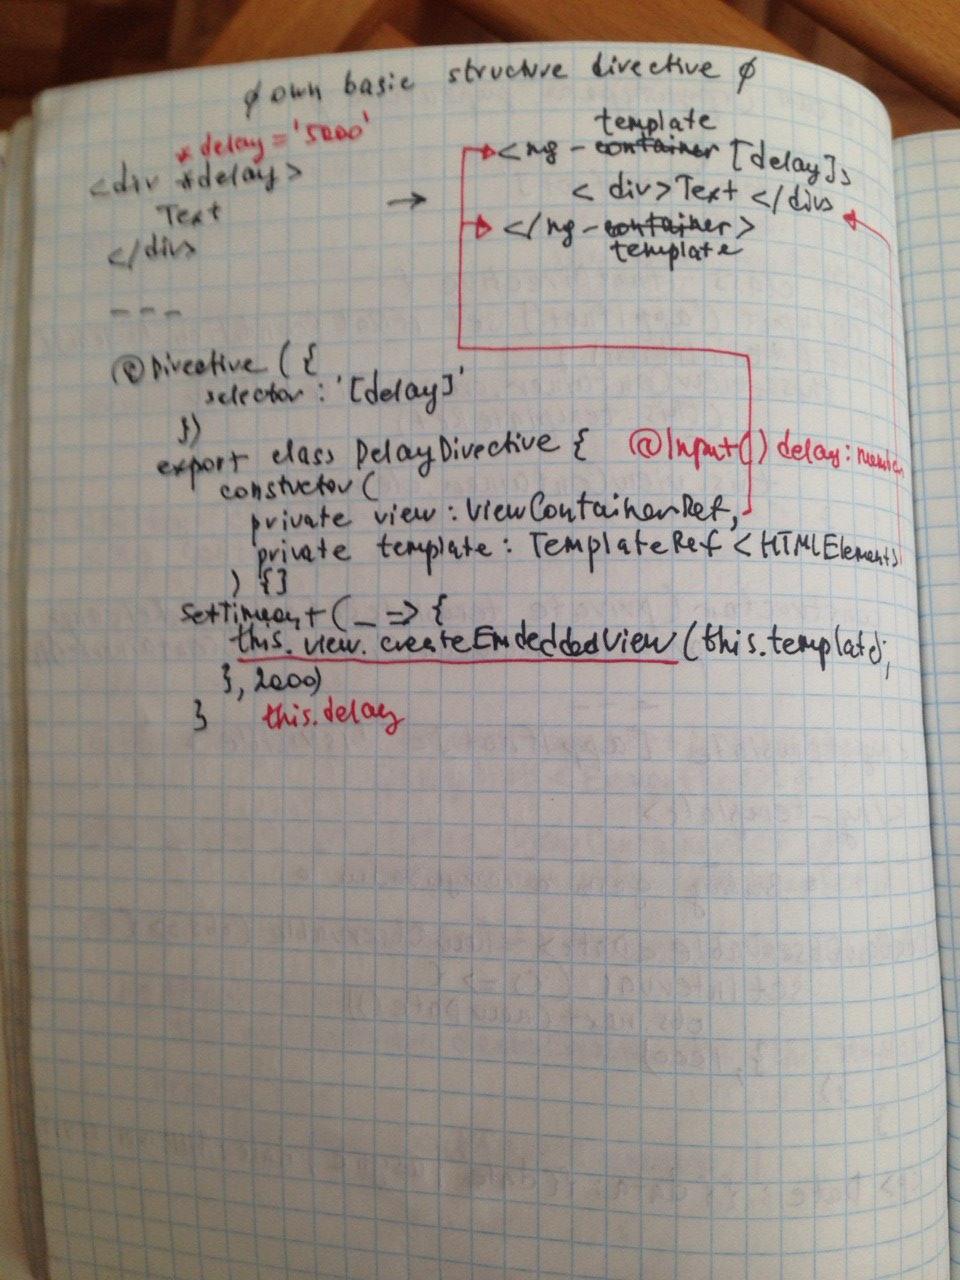 ∅ own basic structure directive ∅
* delay = '5000'
<div *delay>
Text
</div>
→
template
<ng - container [delay]>
<div> Text </div>
</ng - container>
template
---
@Directive ({
selector : '[delay]'
})
export class DelayDirective {
@Input() delay : number
constuctor (
private view : ViewContainerRef,
private template : TemplateRef <HTMLElement>
) {}
setTimeout ( _ => {
this. view. createEmdeddedView (this.template);
}, 2000)
this.delay
}